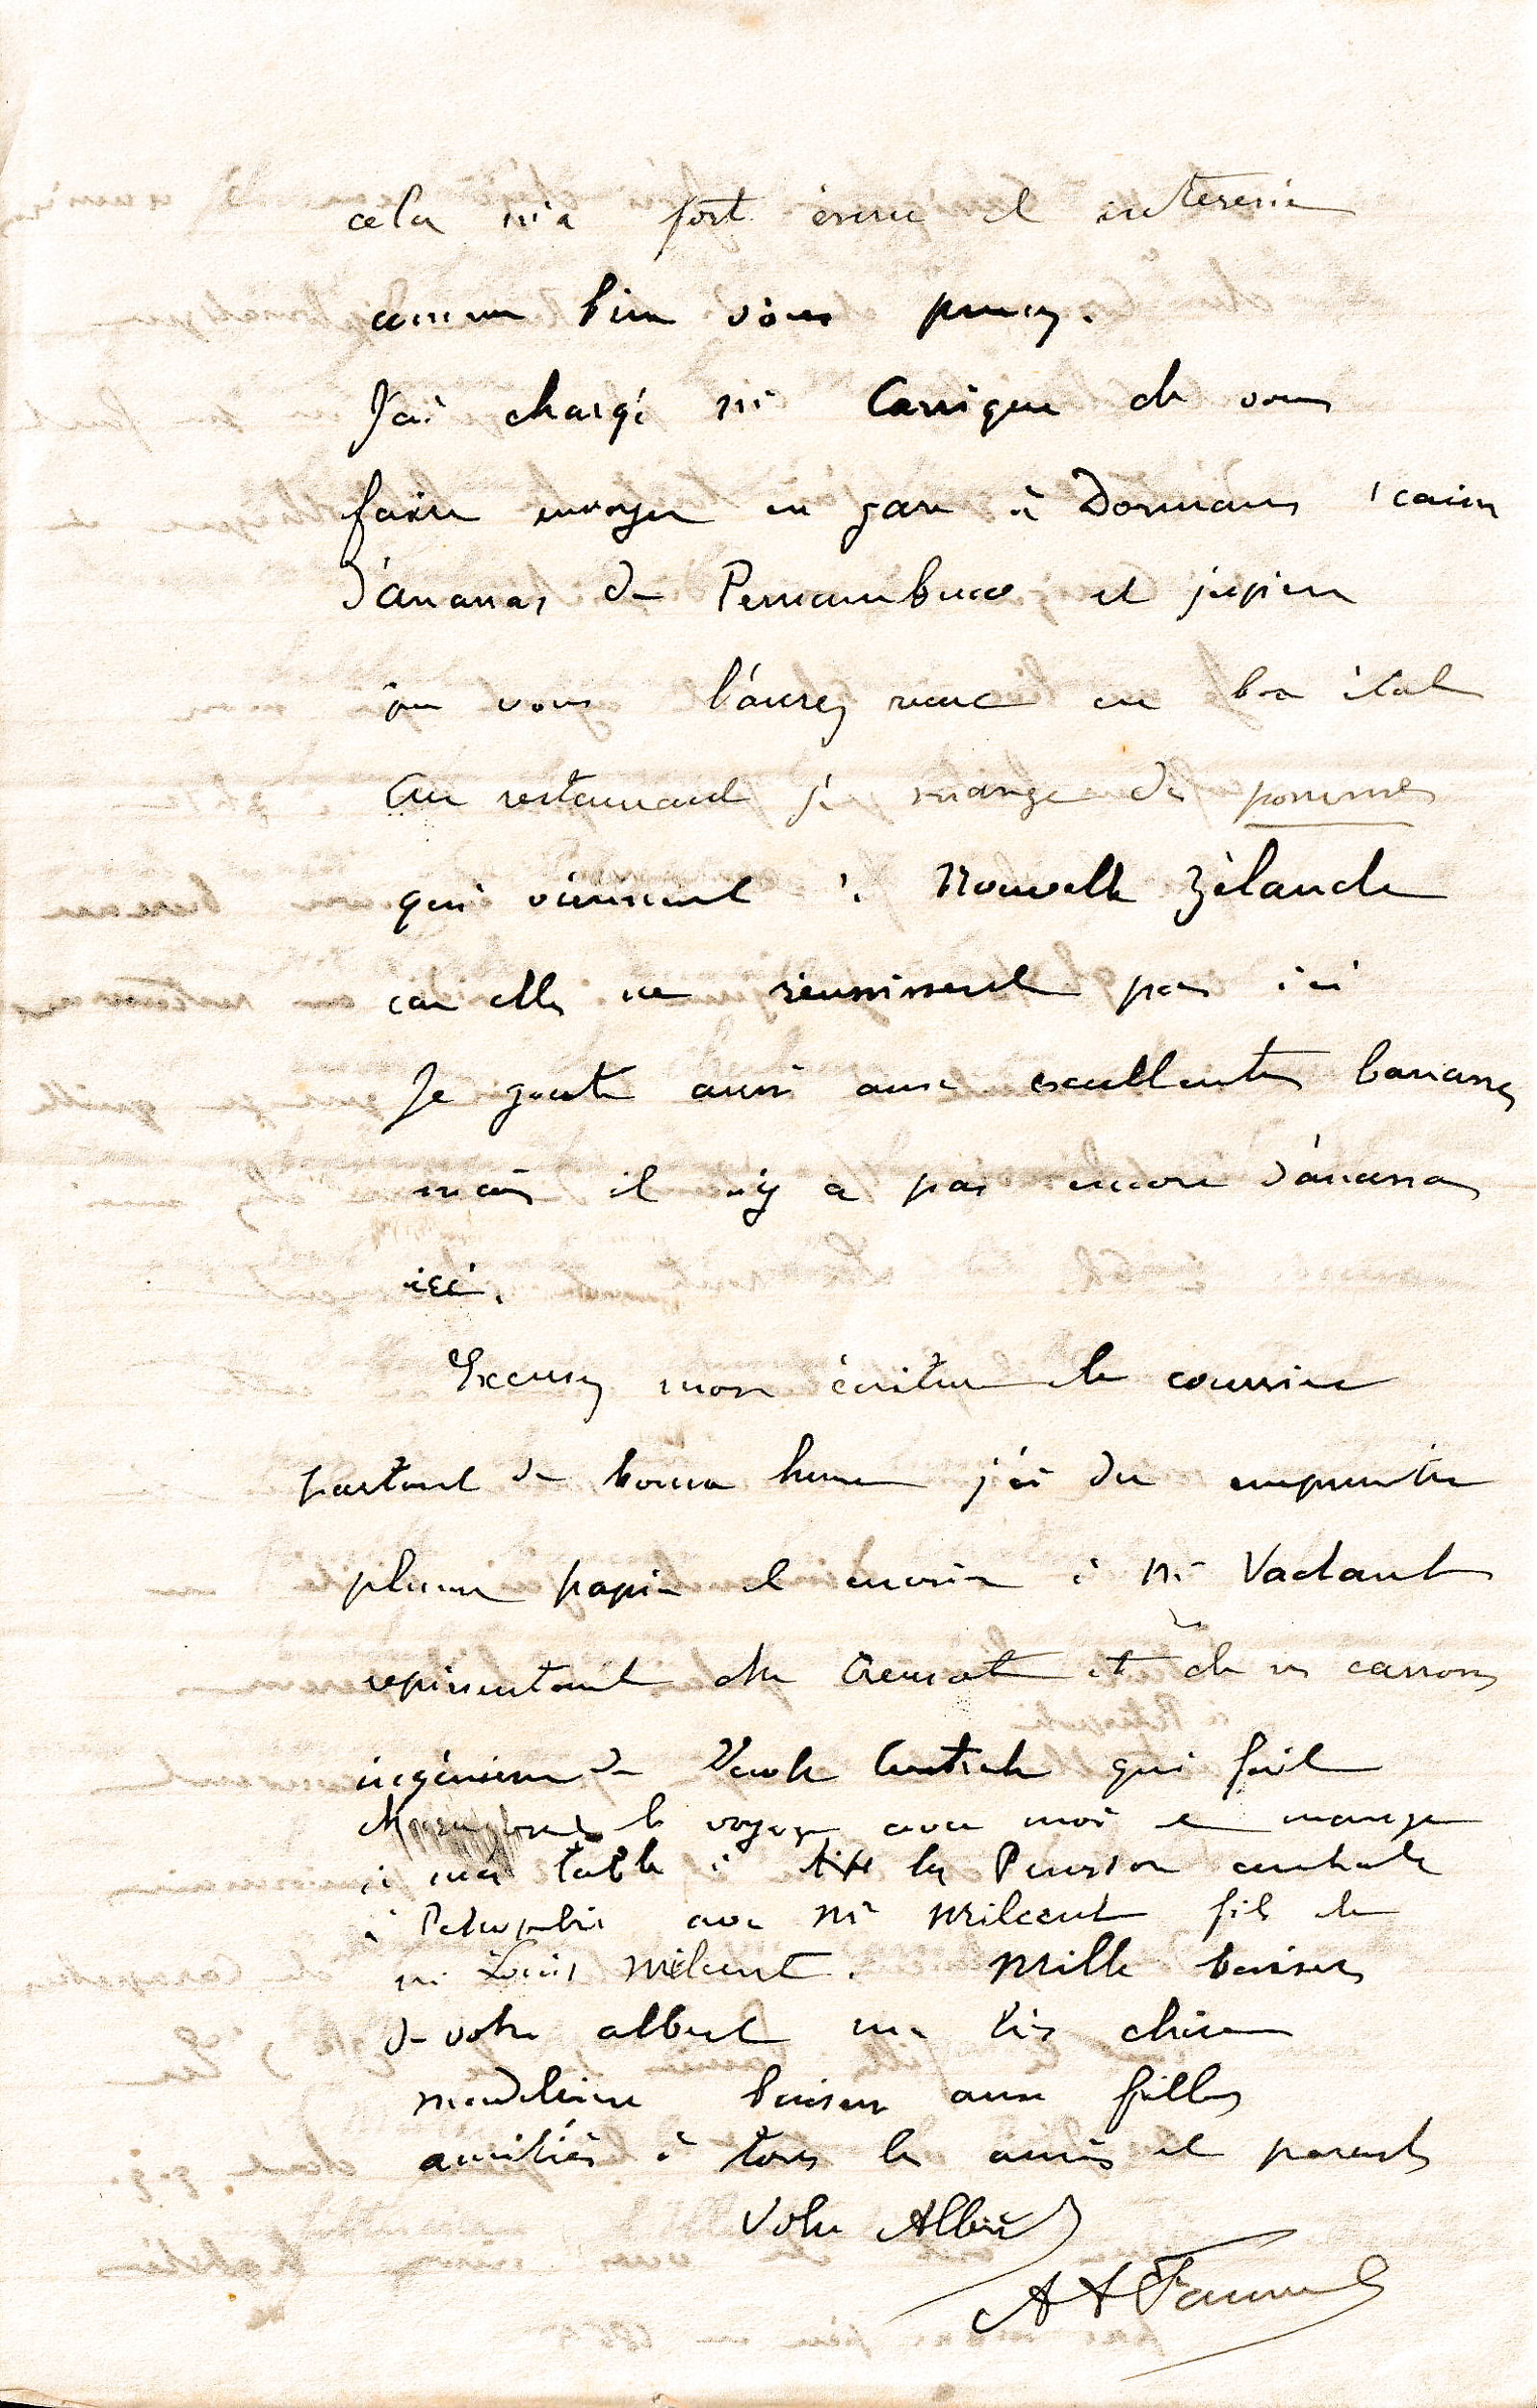 cela m'a fort ému et intéressé
comme bien vous pensez.
J'ai chargé Mr Carrique de vous
faire envoyer en gare à Dormans 1 caisse
d'ananas de Pernambuco et j'espère
que vous l'aurez reçue en bon état
Au restaurant je mange des pommes
qui viennent de Nouvelle Zélande
car elles ne réussissent pas ici
Je goute aussi aux excellentes bananes
mais il n'y a pas encore d'ananas
ici.
Excusez mon écriture le courrier
partant de bonne heure j'ai du emprunter
plume papier et encrier à Mr Vaclant
représentant du Creusot et de ses canons
ingénieur de l'Ecole Centrale qui fait
le voyage avec moi et mange
à ma table à la Pension centrale
à Petropolis avec Mr Milcent fils de
Mr Louis Milcent. Mille baisers
de votre Albert ma très chère
Madeleine baisers aux filles
amitiés à tous les amis et parents
Votre Albert